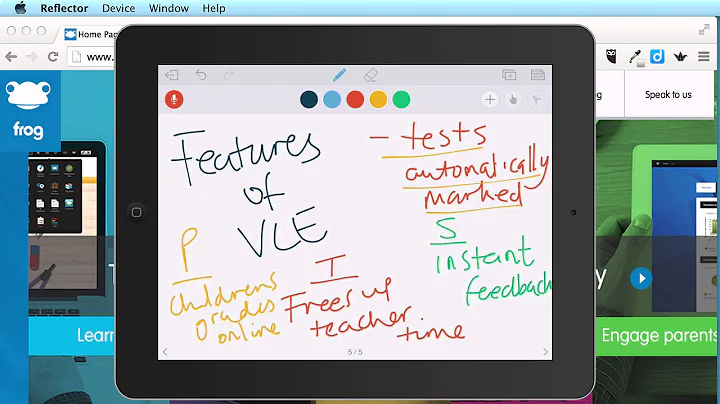 Reflector Device Window Help
Home Pag
www.
frog
Speak to us
Features
of
VLE
– tests
automatically
marked
P
Childrens
grades
online
T
Frees up
teacher
time
S
instant
feedback
5/5
Learn
Engage parents